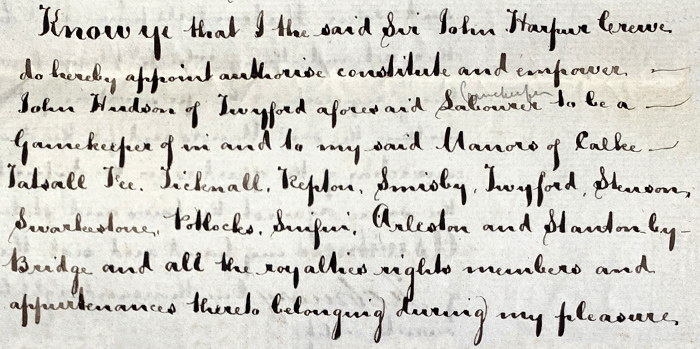 Know ye that I the said Sir John Harpur Crewe
do hereby appoint authorise constitute and empower —
Gamekeeper
John Hudson of Twyford aforesaid Labourer to be a —
Gamekeeper of in and to my said Manors of Calke —
Tatsall Fee. Ticknall, Repton, Smisby, Twyford, Stenson,
Swarkestone, Potlocks, Sinfin, Arleston and Stanton by-
Bridge and all the royalties rights members and
appurtenances thereto belonging during my pleasure.